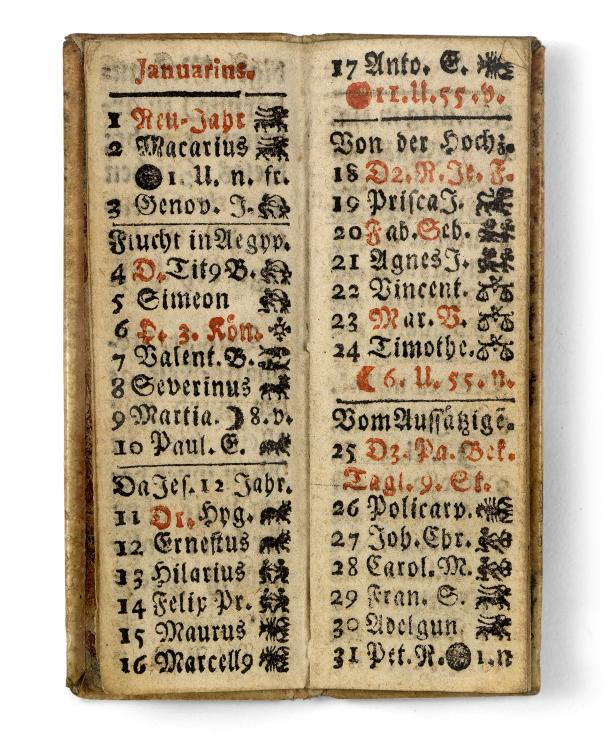 Januarius.
1 Neu-Jahr
2 Macarius
1. U. n. fr.
3 Genov. J.
Flucht in Aegyp.
4 D. Tit9 B.
5 Simeon
6 H. 3. Kön.
7 Valent. B.
8 Severinus
9 Martia. ☽ 8. v.
10 Paul. E.
Da Jes. 12 Jahr.
11 D1. Hyg.
12 Ernestus
13 Hilarius
14 Felix Pr.
15 Maurus
16 Marcell9
17 Anto. E.
11. U. 55. v.
Von der Hochz.
18 D2. N. Je. F.
19 Prisca J.
20 Fab. Seb.
21 Agnes J.
22 Vincent.
23 Mar. V.
24 Timothe.
☾ 6. U. 55. n.
Vom Aussätzigē.
25 D3. Pa. Bek.
Tagl. 9. St.
26 Policarp.
27 Joh. Chr.
28 Carol. M.
29 Fran. S.
30 Adelgun
31 Pet. N. 1. n